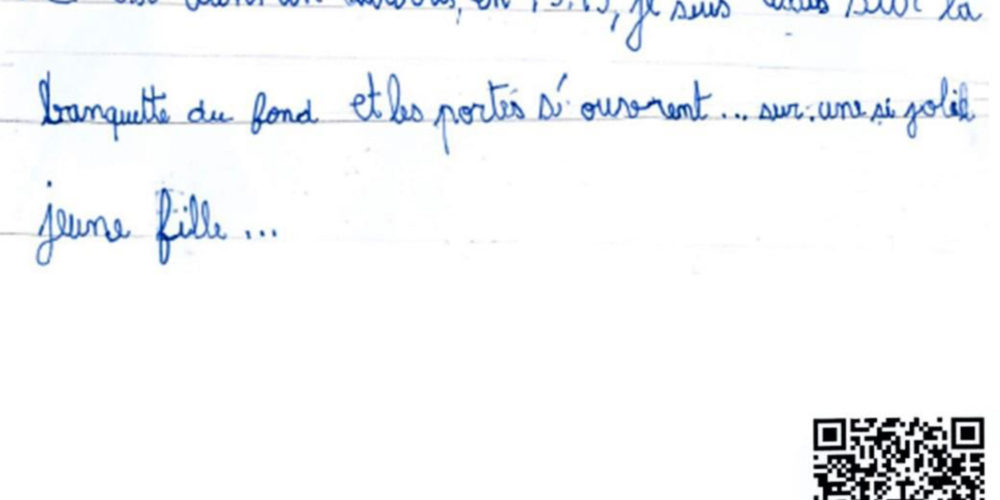 je suis assis sur la
banquette du fond et les portes s'ouvrent... sur une si jolie
jeune fille...